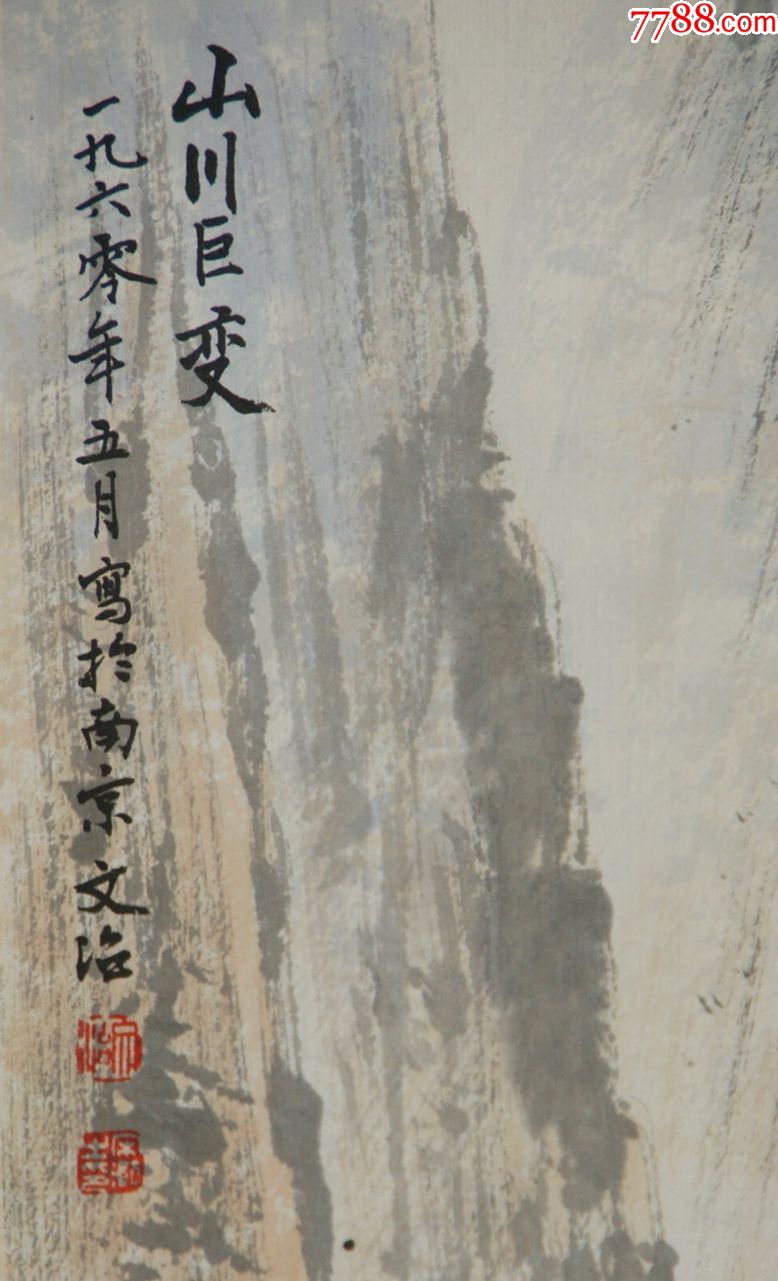 7788.com
山川巨变
一九六零年五月寫於南京文治